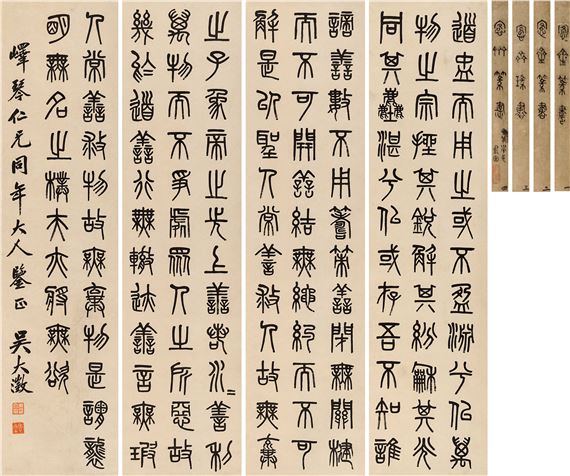 道盅而用之或不盈淵兮似萬
物之宗挫其銳解其紛龢其光
同其塵湛兮似或存吾不知誰
謫善數不用籌策善閉無關楗
而不可開善結無繩約而不可
解是以聖人常善救人故無棄
之子象帝之先上善若水〻善利
萬物而不爭處眾人之所惡故
幾於道善行無轍迹善言無瑕
人常善救物故無棄物是謂襲
明無名之樸夫亦將無欲
嶧琴仁兄同年大人鑒正 吳大澂